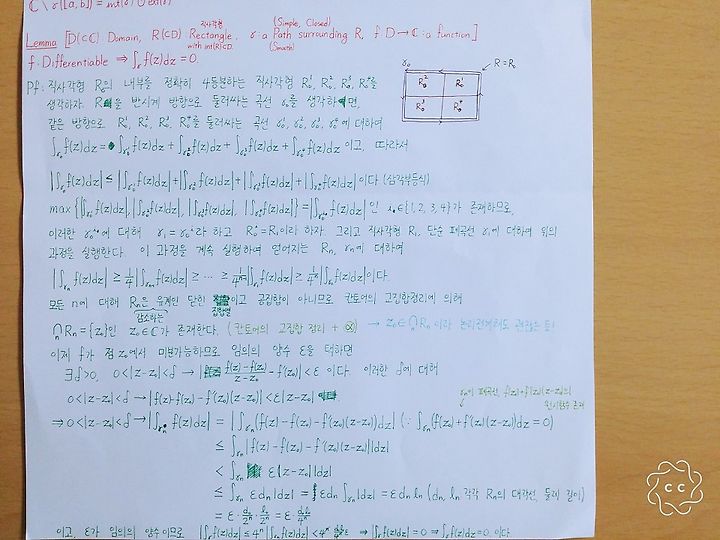 ℂ \ γ([a, b]) = int(γ) ∪ ext(γ)
직사각형 (Simple, Closed)
Lemma [D(⊂ℂ) Domain, R(⊂D) Rectangle, γ: a Path surrounding R, f: D→ℂ: a function]
with int(R)⊂D. (Smooth)
f: Differentiable ⇒ ∫γ f(z)dz = 0.
Pf. 직사각형 R₀의 내부를 정확히 4등분하는 직사각형 R₀¹, R₀², R₀³, R₀⁴를
생각하자. R을 반시계 방향으로 둘러싸는 곡선 γ₀를 생각하면,
같은 방향으로 R₀¹, R₀², R₀³, R₀⁴를 둘러싸는 곡선 γ₀¹, γ₀², γ₀³, γ₀⁴에 대하여
γ₀ R=R₀
R₀² R₀¹
R₀³ R₀⁴
∫γ₀ f(z)dz = ∫γ₀¹ f(z)dz + ∫γ₀² f(z)dz + ∫γ₀³ f(z)dz + ∫γ₀⁴ f(z)dz 이고, 따라서
|∫γ₀ f(z)dz| ≤ |∫γ₀¹ f(z)dz| + |∫γ₀² f(z)dz| + |∫γ₀³ f(z)dz| + |∫γ₀⁴ f(z)dz| 이다 (삼각부등식)
max {|∫γ₀¹ f(z)dz|, |∫γ₀² f(z)dz|, |∫γ₀³ f(z)dz|, |∫γ₀⁴ f(z)dz|} = |∫ f(z)dz| 인 ∈{1, 2, 3, 4}가 존재하므로,
이러한 에 대해 γ₁ = 라 하고 = R₁이라 하자. 그리고 직사각형 R₁, 단순 폐곡선 γ₁에 대하여 위의
과정을 실행한다. 이 과정을 계속 실행하여 얻어지는 Rₙ, γₙ에 대하여
|∫γₙ f(z)dz| ≥ 1/4 |∫ f(z)dz| ≥ ⋯ ≥ |∫ f(z)dz| ≥ 1/4ⁿ |∫γ₀ f(z)dz| 이다.
모든 n에 대해 Rₙ은 유계인 닫힌 이고 공집합이 아니므로 칸토어의 교집합정리에 의해
감소하는 집합열
∩ₙ Rₙ = {z₀}인 z₀∈ℂ가 존재한다. (칸토어의 교집합 정리 + α) → z₀∈∩ₙRₙ 이라 논리전개해도 괜찮을 듯!
이제 f가 점 z₀에서 미분가능하므로 임의의 양수 ε을 택하면
∃δ>0, 0<|z-z₀|<δ → |(f(z)-f(z₀))/(z-z₀) - f'(z₀)| < ε 이다. 이러한 δ에 대해
0<|z-z₀|<δ → |f(z)-f(z₀)-f'(z₀)(z-z₀)| < ε|z-z₀|
γₙ이 폐곡선, f(z₀)+f'(z₀)(z-z₀)의
원시함수 존재
⇒ 0<|z-z₀|<δ → |∫γₙ f(z)dz| = |∫γₙ(f(z)-f(z₀)-f'(z₀)(z-z₀))dz| (∵ ∫γₙ(f(z₀)+f'(z₀)(z-z₀))dz = 0)
≤ ∫γₙ|f(z)-f(z₀)-f'(z₀)(z-z₀)||dz|
< ∫γₙ ε|z-z₀||dz|
≤ ∫γₙ εdₙ|dz| = εdₙ∫γₙ|dz| = εdₙlₙ (dₙ, lₙ 각각 Rₙ의 대각선, 둘레 길이)
= ε·d₀/2ⁿ·l₀/2ⁿ = ε d₀l₀/4ⁿ
이고, ε가 임의의 양수이므로 |∫γ₀ f(z)dz| ≤ 4ⁿ|∫γₙ f(z)dz| < ⇒ |∫γ₀ f(z)dz| = 0 ⇒ ∫γ₀ f(z)dz = 0. 이다.
CC